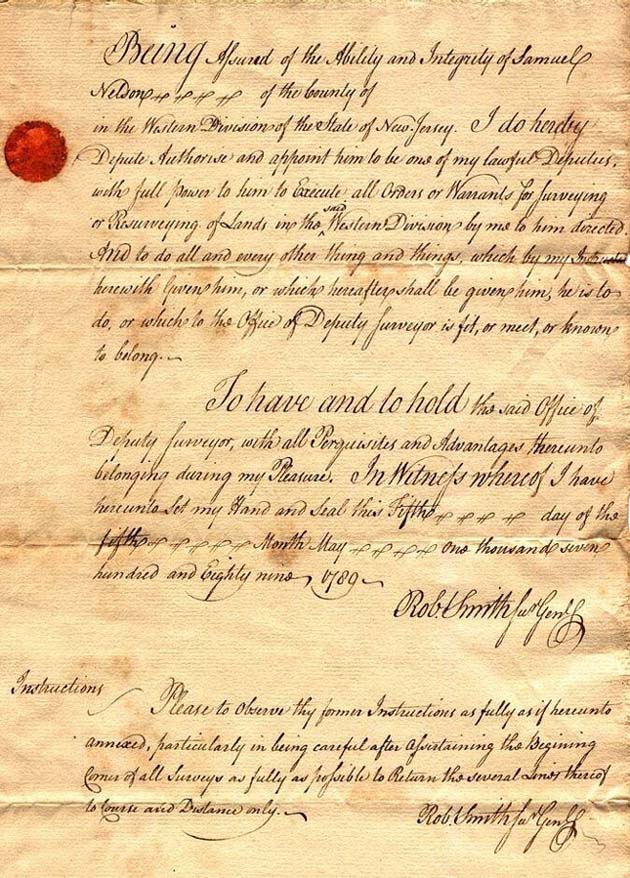 Being Assured of the Ability and Integrity of Samuel
Nelson of the County of
in the Western Division of the State of New Jersey. I do hereby
Depute Authorise and appoint him to be one of my lawful Deputies,
with full Power to him to Execute all Orders or Warrants for Surveying
or Resurveying of Lands in the said Western Division by me to him directed.
And to do all and every other thing and things, which by my
herewith Given him, or which hereafter shall be given him, he is to
do, or which to the Office of Deputy Surveyor is fit, or meet, or known
to belong.
To have and to hold the said Office of
Deputy Surveyor, with all Perquisites and Advantages thereunto
belonging during my Pleasure. In Witness whereof I have
hereunto Set my Hand and Seal this Fifth day of the
fifth Month May one thousand seven
hundred and Eighty nine 1789
Rob.t Smith Sur.r Gen.l
Instructions
Please to Observe thy former Instructions as fully as if hereunto
annexed, particularly in being careful after Assirtaining the Begining
Corner of all Surveys as fully as possible to Return the several Lines thereof
to Course and Distance only.
Rob.t Smith Sur.r Gen.l